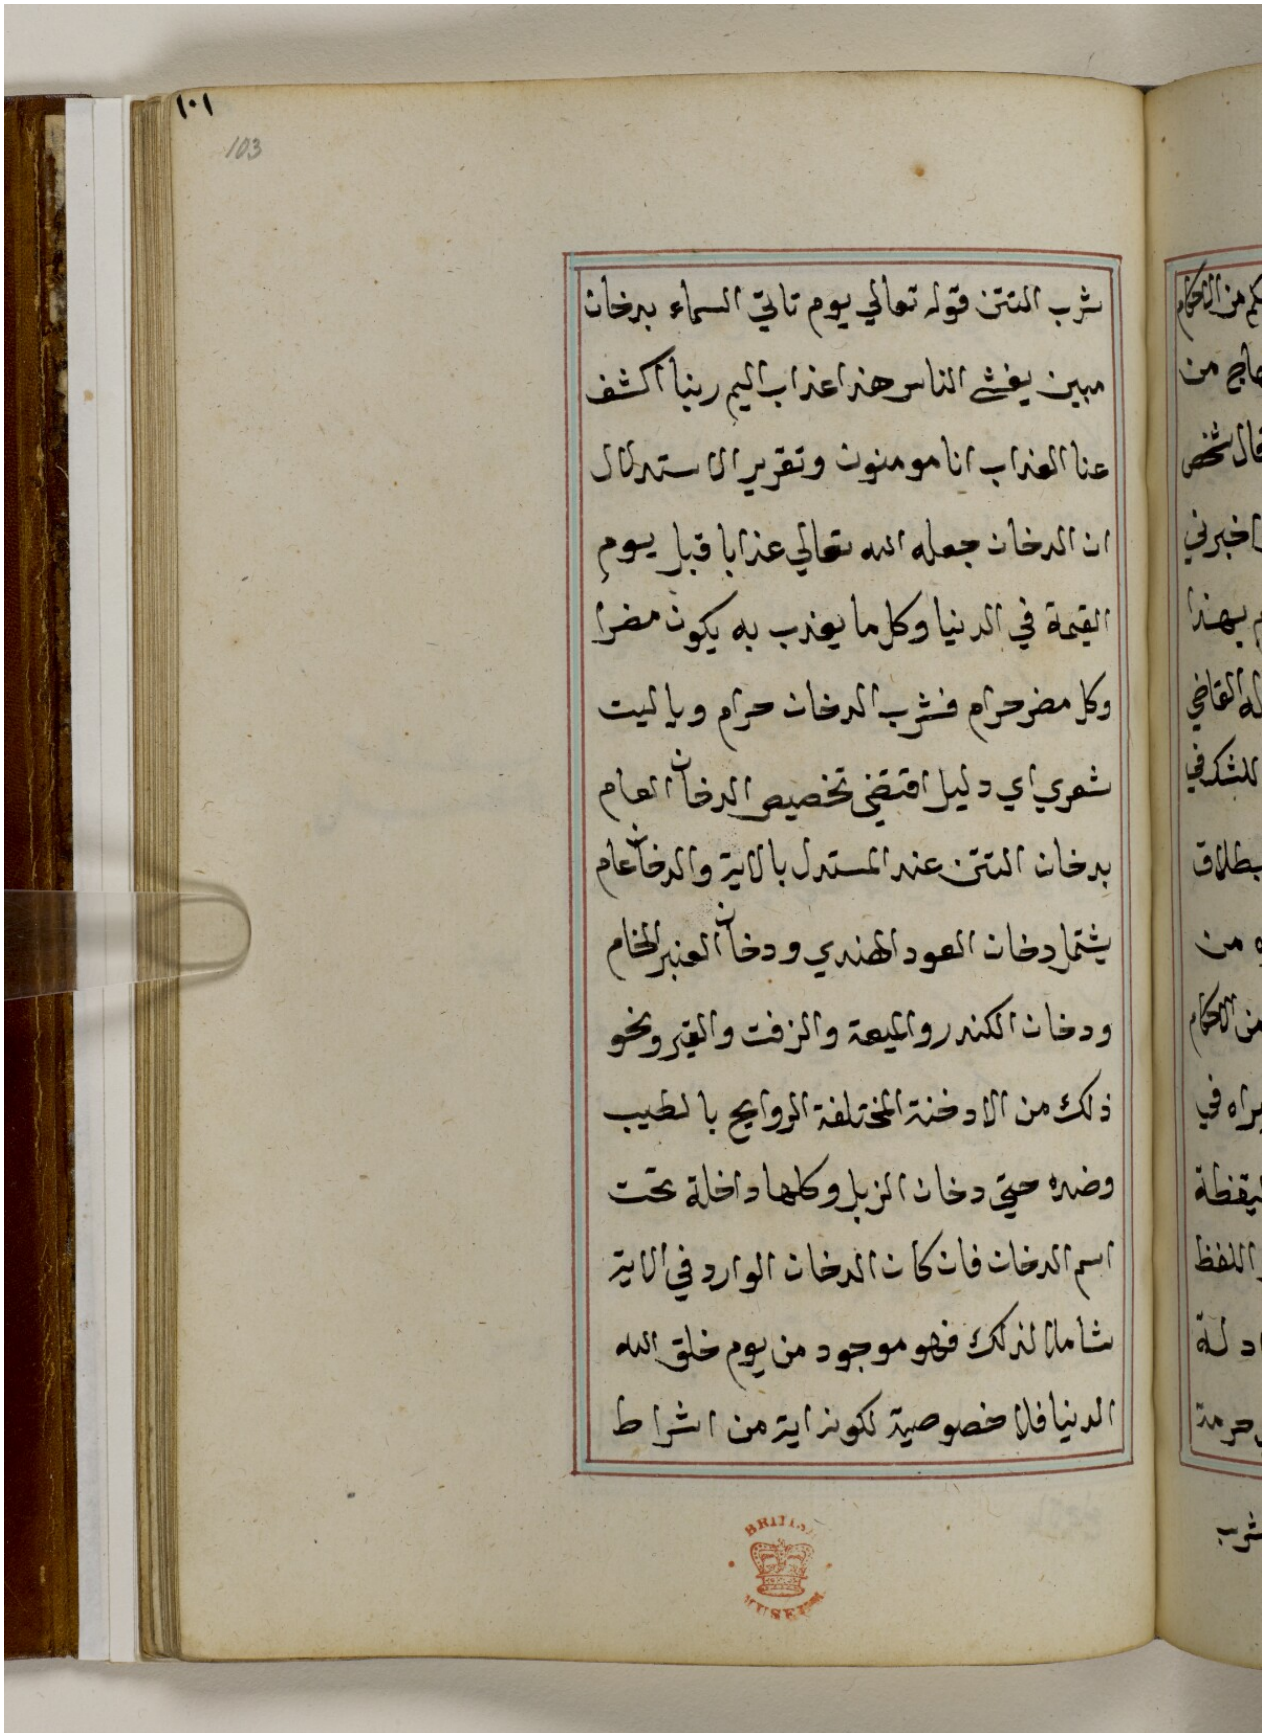 ١٠١
103
شرب التتن قوله تعالي يوم تاتي السماء بدخان
مبين يغشي الناس هذا عذاب اليم ربنا اكشف
عنا العذاب انا مومنون وتقرير الاستدلال
ان الدخان جعله الله تعالي عذابا قبل يوم
القيمة في الدنيا وكل ما يعذب به يكون مضرا
وكل مضر حرام فشرب الدخان حرام ويا ليت
شعري اي دليل اقتضي تخصيص الدخان العام
بدخان التتن عند المستدل بالاية والدخان عام
يشتمل دخان العود الهندي ودخان العنبر الخام
ودخان الكندر والميعة والزفت والقير ونحو
ذلك من الادخنة المختلفة الروايح بالطيب
وضده حتي دخان الزبل وكلها داخلة تحت
اسم الدخان فان كان الدخان الوارد في الاية
شاملا لذلك فهو موجود من يوم خلق الله
الدنيا فلا خصوصية لكونه اية من اشراط
BRITISH
MUSEUM
من الاحكام
من
قال شخص
اخبرني
بهذا
القاضي
للشك في
بطلاق
من
من الاحكام
يراه في
اللفظ
حرمة
شرب